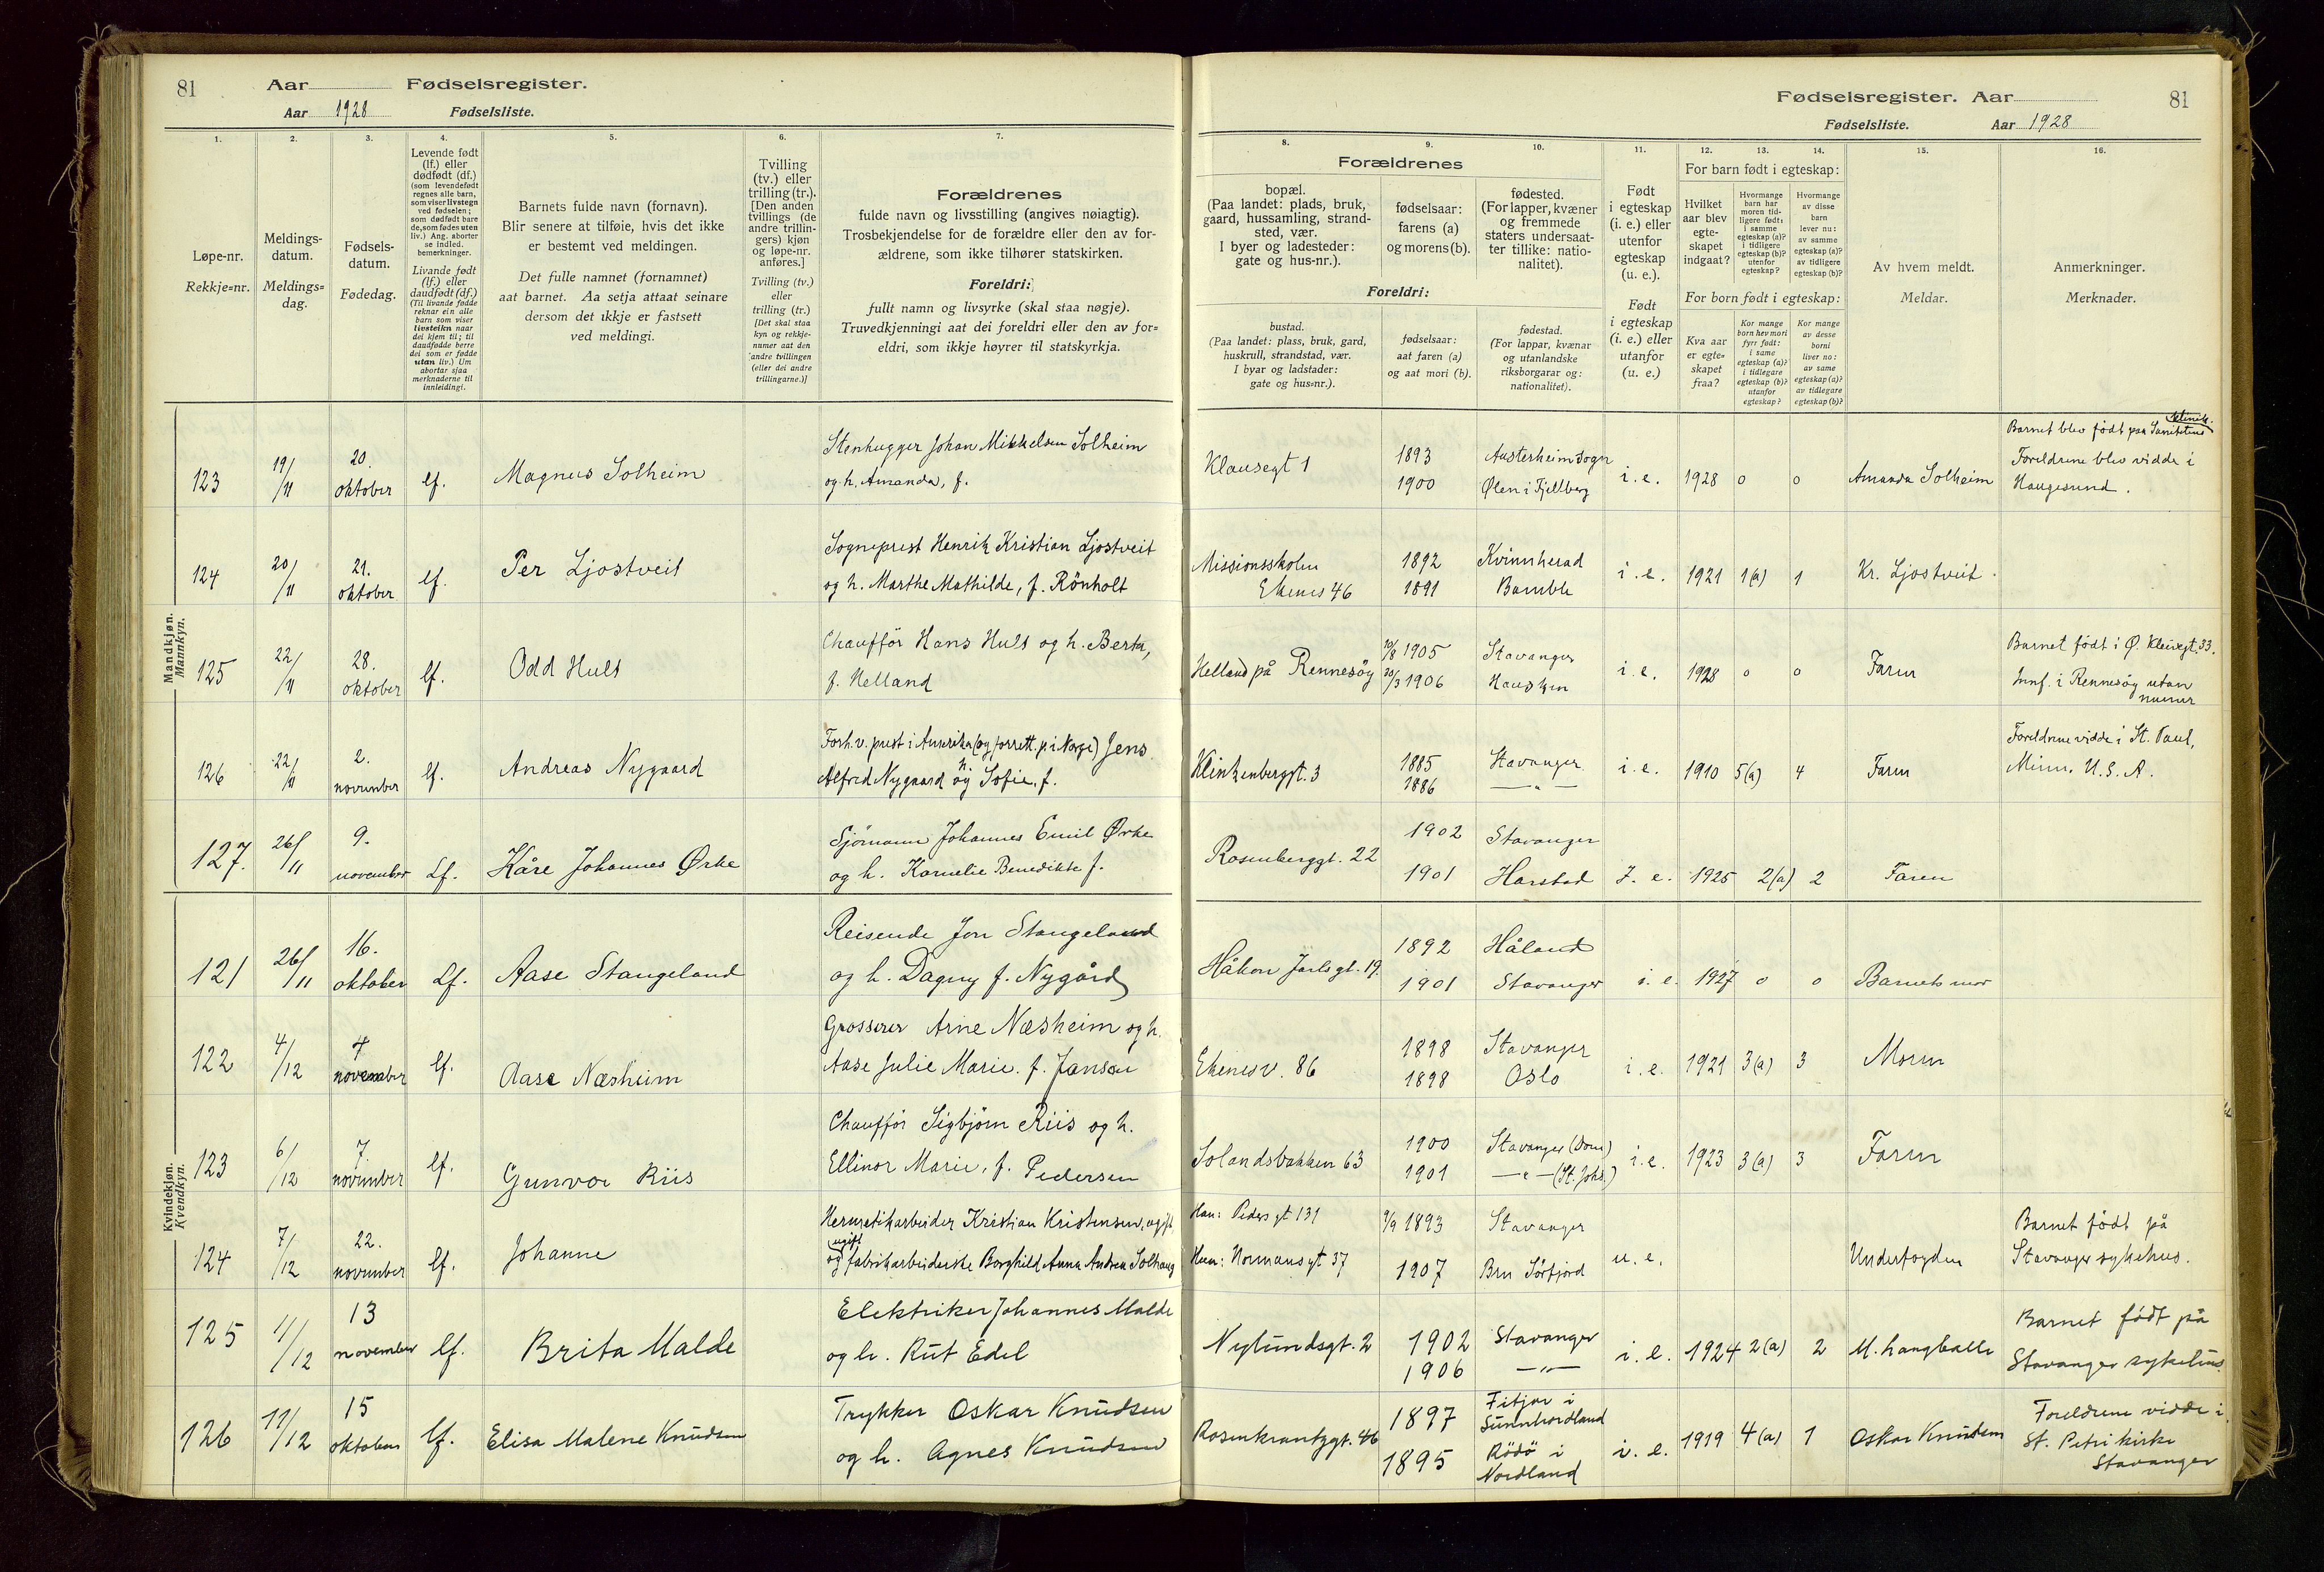 81
Aar Fødselsregister.
Aar 1928 Fødselsliste.
1. 2. 3. 4. 5. 6. 7.
Løpe-nr.
Rekkje=nr.
Meldings-
datum.
Meldings=
dag.
Fødsels-
datum.
Fødedag.
Levende født
(lf.) eller
dødfødt (df.)
(som levendefødt
regnes alle barn,
som viser livstegn
ved fødselen;
som dødfødt bare
de, som fødes uten
liv.) Ang. aborter
se indled.
bemerkninger.
Livande født
(lf.) eller
daudfødt (df.)
(Til livande fødde
reknar ein alle
barn som viser
livsteikn naar
dei kjem til; til
daudfødde berre
dei som er fødde
utan liv.) Um
abortar sjaa
merknaderne til
innleidingi.
Barnets fulde navn (fornavn).
Blir senere at tilføie, hvis det ikke
er bestemt ved meldingen.
Det fulle namnet (fornamnet)
aat barnet. Aa setja attaat seinare
dersom det ikkje er fastsett
ved meldingi.
Tvilling
(tv.) eller
trilling (tr.).
[Den anden
tvillings (de
andre trillin-
gers) kjøn
og løpe-nr.
anføres.]
Tvilling (tv.)
eller
trilling (tr.)
[Det skal staa
kyn og rekkje-
numer aat den
andre tvillingen
(eller dei andre
trillingarne.)]
Forældrenes
fulde navn og livsstilling (angives nøiagtig).
Trosbekjendelse for de forældre eller den av for-
ældrene, som ikke tilhører statskirken.
Foreldri:
fullt namn og livsyrke (skal staa nøgje).
Truvedkjenningi aat dei foreldri eller den av for=
eldri, som ikkje høyrer til statskyrkja.
Mandkjøn.
Mannkyn.
123 19/11 20. oktober lf. Magnus Solheim
Stenhugger Johan Mikkelsen Solheim
og h. Amanda, f.
124 20/11 21. oktober lf. Per Ljostveit
Sogneprest Henrik Kristian Ljostveit
og h. Marthe Mathilde, f. Rönholt
125 22/11 28. oktober lf. Odd Hult
Chaufför Hans Hult og h. Berta,
f. Helland
126 22/11 2. november lf. Andreas Nygaard
Forh. v. prest i Amerika (og forrett. p. i Norge) Jens
Alfred Nygaard og h. Sofie, f.
127. 26/11 9. november Lf. Kåre Johannes Ørke
Sjömann Johannes Emil Ørke
og h. Kornelie Benedikte f.
Kvindekjøn.
Kvendkyn.
121 26/11 16. oktober Lf. Aase Stangeland
Reisende Jon Stangeland
og h. Dagny f. Nygård
122 4/12 4 november lf. Aase Næsheim
Grosserer Arne Næsheim og h.
Aase Julie Marie. f. Janson
123 6/12 7. november lf. Gunvor Riis
Chaufför Sigbjörn Riis og h.
Ellinor Marie, f. Pedersen
124 7/12 22. november lf. Johanne
Hermetikarbeider Kristian Kristensen, ugift
ugift
og fabrikarbeiderske Borghild Anna Andrea Solhaug
125 11/12 13 november lf. Brita Malde
Elektriker Johannes Malde
og h. Rut Edel
126 12/12 15 oktober lf. Elisa Malene Knudsen
Trykker Oskar Knudsen
og h. Agnes Knudsen
Fødselsregister. Aar 81
Fødselsliste. Aar 1928
8. 9. 10. 11. 12. 13. 14. 15. 16.
Forældrenes
bopæl.
(Paa landet: plads, bruk,
gaard, hussamling, strand-
sted, vær.
I byer og ladesteder:
gate og hus-nr.).
fødselsaar:
farens (a)
og morens (b).
fødested.
(For lapper, kvæner
og fremmede
staters undersaat-
ter tillike: natio-
nalitet).
Foreldri:
bustad.
(Paa landet: plass, bruk, gard,
huskrull, strandstad, vær.
I byar og ladstader:
gate og hus=nr.).
fødselsaar:
aat faren (a)
og aat mori (b).
fødestad.
(For lappar, kvænar
og utanlandske
riksborgarar og:
nationalitet).
Født
i egteskap
(i. e.) eller
utenfor
egteskap
(u. e.).
Født
i egteskap
(i. e.) eller
utanfor
(u. e.)
For barn født i egteskap:
Hvilket
aar blev
egte-
skapet
indgaat?
Hvormange
barn har
moren tid-
ligere født:
i samme
egteskap (a)?
i tidligere
egteskap (b)?
utenfor
egteskap?
Hvormange
av disse
barn
lever nu:
av samme
egteskap (a)?
av tidligere
egteskap (b)?
For born født i egteskap:
Kva aar
er egte=
skapet
fraa?
Kor mange
born hev mori
fyrr født:
i same
egteskap (a)?
i tidlegare
egteskap (b)?
utanfor
egteskap?
Kor mange
av desse
borni
liver no:
av same
egteskap (a)?
av tidlegare
egteskap (b)?
Av hvem meldt.
Meldar.
Anmerkninger.
Merknader.
Klausegt 1 1893 Austerheim sogn
1900 Ølen i Fjellberg i. e. 1928 0 0 Amanda Solheim
Barnet blev født paa Sanitetens klinik.
Foreldrene blev vidde i
Haugesund.
Missionsskolen 1892 Kvinnherad
Ekenes 46 1891 Bamble i. e. 1921 1(a) 1 Kr. Ljostveit.
Helland på Rennesöy 1905 Stavanger
20/3 1906 Hausken i. e. 1928 0 0 Faren
Barnet født i Ø. Kleivegt. 33.
Innf. i Rennesöy utan
numer
Klinkenberggt. 3 1885 Stavanger
1886 —"— i. e. 1910 5(a) 4 Faren
Foreldrene vidde i St. Paul,
Minn. U. S. A.
Rosenberggt. 22 1902 Stavanger
1901 Harstad I. e. 1925 2(a) 2 Faren
Håkon Jarlsgt. 19. 1892 Håland
1901 Stavanger i. e. 1927 0 0 Barnets mor
Ekenesv. 86 1898 Stavanger
1898 Oslo i. e. 1921 3(a) 3 Moren
Solandsbakken 63 1900 Stavanger (Dom)
1901 —"— (St. Johs.) i. e. 1923 3(a) 3 Faren
Han: Peders gt 131 1893 Stavanger
Hun: Normansgt 37 1907 Bru Sörfjord u. e. Underfogden
Barnet født på
Stavanger sykehus.
Nylundsgt. 2 1902 Stavanger
1906 —"— i. e. 1924 2(a) 2
Barnet født på
Stavanger sykehus.
Rosenkrantzgt. 46 1897 Fitjar i
Sunnhordland
1895 Rödö i
Nordland i. e. 1919 4(a) 1 Oskar Knudsen
Foreldrene vidde i
St. Petri kirke
Stavanger